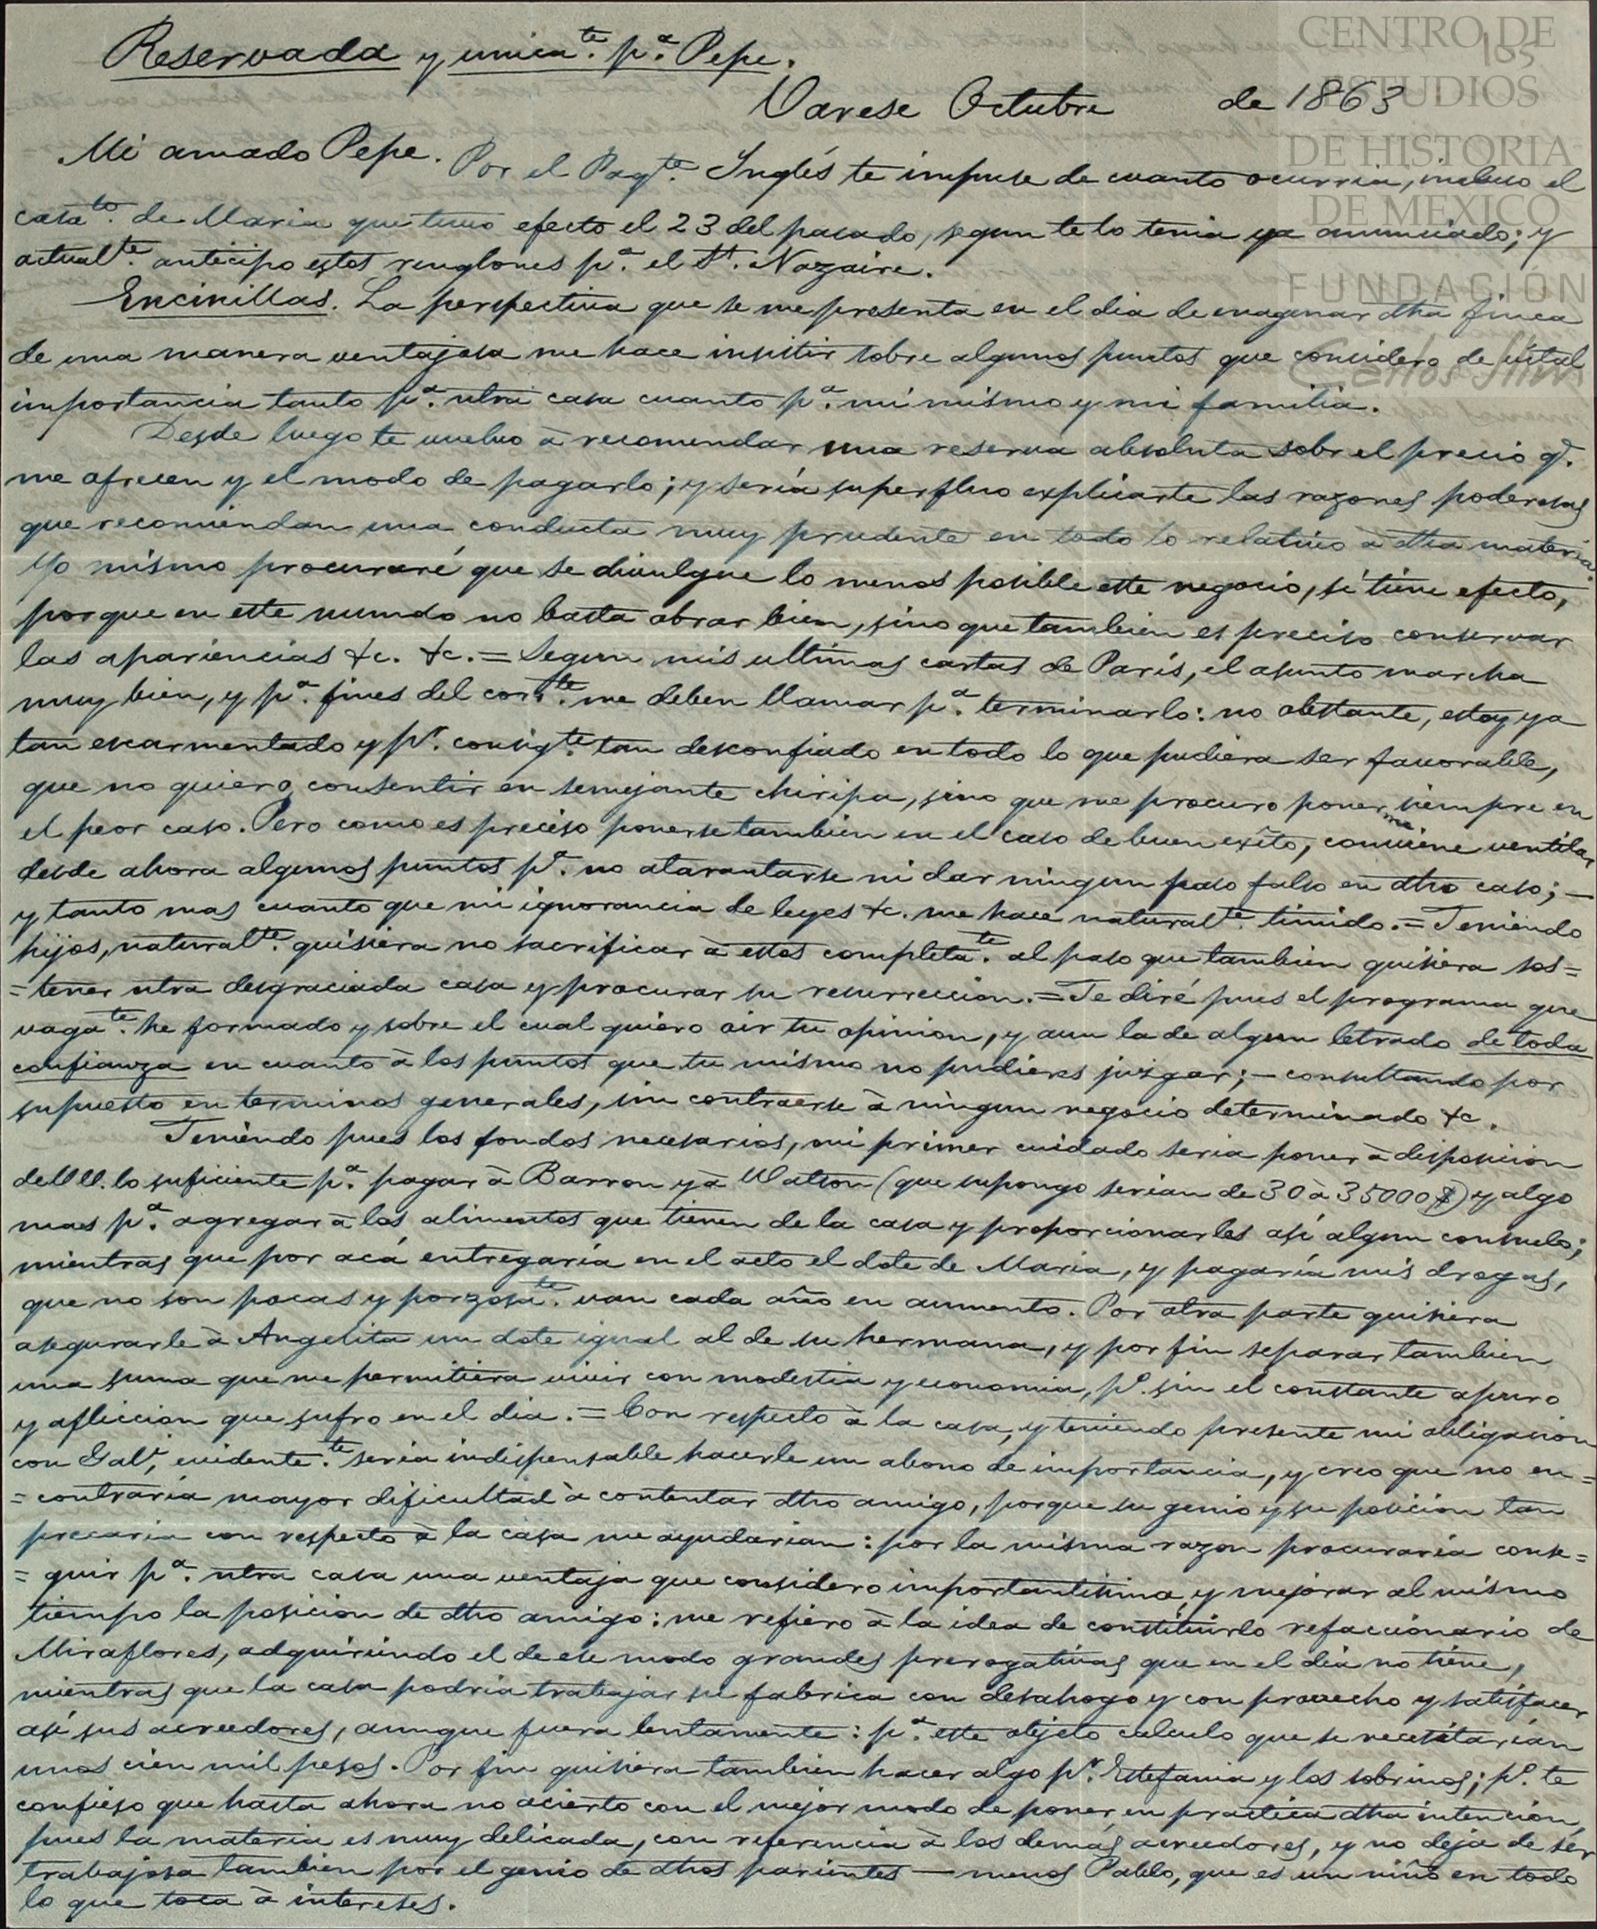 CENTRO DE
ESTUDIOS
DE HISTORIA
DE MEXICO
FUNDACIÓN
Carlos Slim
185
Reservada y unicate. pa. Pepe.
Varese Octubre de 1863
Mi amado Pepe. Por el Paqte. Inglés te impuse de cuanto ocurria, incluso el
casato. de Maria que tuvo efecto el 23 del pasado, segun te lo tenia ya anunciado; y
actualte. anticipo estos renglones pa. el St. Nazaire.
Encinillas. La perspectiva que se me presenta en el dia de enagenar dha finca
de una manera ventajosa me hace insistir sobre algunos puntos que considero de vital
importancia tanto pa. ntra casa cuanto pa. mi mismo y mi familia.
Desde luego te vuelvo à recomendar una reserva absoluta sobre el precio q.
me ofrecen y el modo de pagarlo; y sería superfluo explicarte las razones poderosas
que recomiendan una conducta muy prudente en todo lo relativo à dha materia.
Yo mismo procuraré que se divulgue lo menos posible este negocio, si tiene efecto,
porque en este mundo no basta obrar bien, sino que tambien es preciso conservar
las apariencias &c. &c. = Segun mis ultimas cartas de Paris, el asunto marcha
muy bien, y pa. fines del corrte. me deben llamar pa. terminarlo: no obstante, estoy ya
tan escarmentado y pr. consigte. tan desconfiado en todo lo que pudiera ser favorable,
que no quiero consentir en semejante chiripa, sino que me procuro poner siempre en
el peor caso. Pero como es preciso ponerse tambien en el caso de buen exito, conviéneme ventilar
desde ahora algunos puntos pa. no atarantarse ni dar ningun paso falso en dho caso; —
y tanto mas cuanto que mi ignorancia de leyes &c. me hace naturalte. timido. = Teniendo
hijos, naturalte. quisiera no sacrificar à estos completate. al paso que tambien quisiera sos=
=tener ntra desgraciada casa y procurar su resurreccion. = Te diré pues el programa que
vagate. he formado y sobre el cual quiero oir tu opinion, y aun la de algun letrado de toda
confianza en cuanto à los puntos que tu mismo no pudieres juzgar; — consultando por
supuesto en terminos generales, sin contraerse à ningun negocio determinado &c.
Teniendo pues los fondos necesarios, mi primer cuidado seria poner à disposicion
de VV. lo suficiente pa. pagar à Barron y à Watson (que supongo serian de 30 à 35000 $) y algo
mas pa. agregar à los alimentos que tienen de la casa y proporcionarles asi algun consuelo;
mientras que por acá entregaría en el acto el dote de Maria, y pagaría mis drogas,
que no son pocas y porzosate. van cada año en aumento. Por otra parte quisiera
asegurarle à Angelita un dote igual al de su hermana, y por fin separar tambien
una suma que me permitiera vivir con modestia y economia, po. sin el constante apuro
y afliccion que sufro en el dia. = Con respecto à la casa, y teniendo presente mi obligacion
con Galv, evidentete. seria indispensable hacerle un abono de importancia, y creo que no en=
=contraría mayor dificultad à contentar dho amigo, porque su genio y su posicion tan
precaria con respecto à la casa me ayudarian: por la misma razon procuraría conse=
=guir pa. ntra casa una ventaja que considero importantisima y mejorar al mismo
tiempo la posicion de dho amigo: me refiero à la idea de constituirlo refaccionario de
Miraflores, adquiriendo el de ese modo grandes prerogativas que en el dia no tiene,
mientras que la casa podria trabajar su fabrica con desahogo y con provecho y satisfacer
asi sus acreedores, aunque fuera lentamente: pa. este objeto calculo que se necesitarían
unos cien mil pesos. Por fin quisiera tambien hacer algo pr. Estefania y los sobrinos; po. te
confieso que hasta ahora no acierto con el mejor modo de poner en practica dha intencion,
pues la materia es muy delicada, con referencia à los demás acreedores, y no deja de ser
trabajosa tambien por el genio de dhos parientes — menos Pablo, que es un niño en todo
lo que toca à intereses.